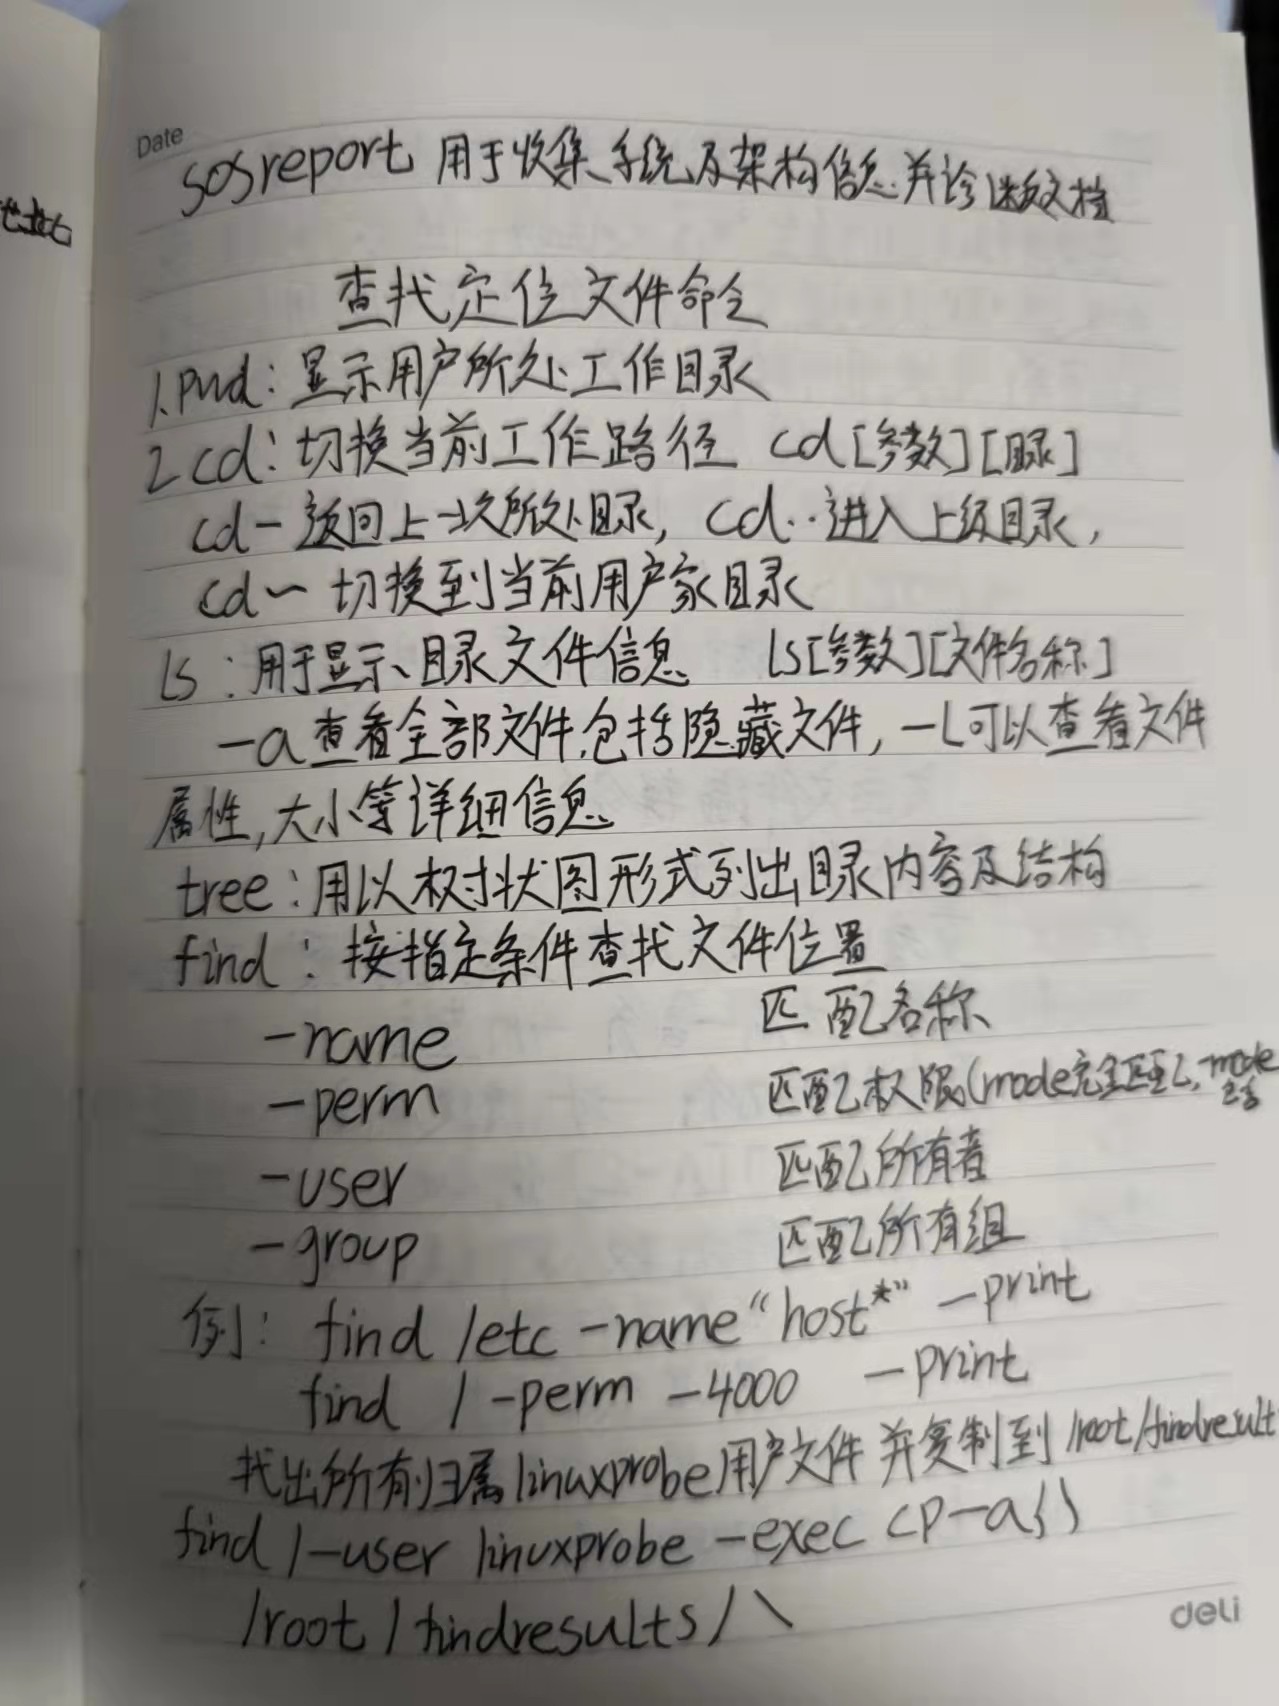 Date
sosreport 用于收集系统及架构信息并诊断文档
查找定位文件命令
1.pwd：显示用户所处工作目录
2 cd：切换当前工作路径 cd [参数] [目录]
cd - 返回上一次所处目录，cd .. 进入上级目录，
cd ~ 切换到当前用户家目录
ls：用于显示目录文件信息 ls [参数] [文件名称]
-a 查看全部文件,包括隐藏文件，-l 可以查看文件
属性,大小等详细信息
tree：用以树状图形式列出目录内容及结构
find：按指定条件查找文件位置
-name 匹配名称
-perm 匹配权限(mode完全匹配,-mode
包含
-user 匹配所有者
-group 匹配所有组
例：find /etc -name “host*” -print
find / -perm -4000 -print
找出所有归属linuxprobe用户文件并复制到/root/findresult
find / -user linuxprobe -exec cp -a {}
/root/findresults/ \
deli